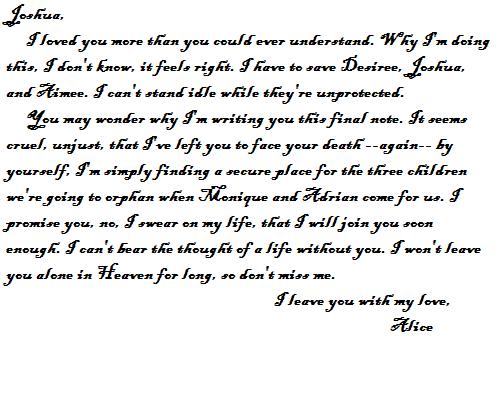 Joshua,
I loved you more than you could ever understand. Why I'm doing
this, I don't know, it feels right. I have to save Desiree, Joshua,
and Aimee. I can't stand idle while they're unprotected.
You may wonder why I'm writing you this final note. It seems
cruel, unjust, that I've left you to face your death --again-- by
yourself, I'm simply finding a secure place for the three children
we're going to orphan when Monique and Adrian come for us. I
promise you, no, I swear on my life, that I will join you soon
enough. I can't bear the thought of a life without you. I won't leave
you alone in Heaven for long, so don't miss me.
I leave you with my love,
Alice